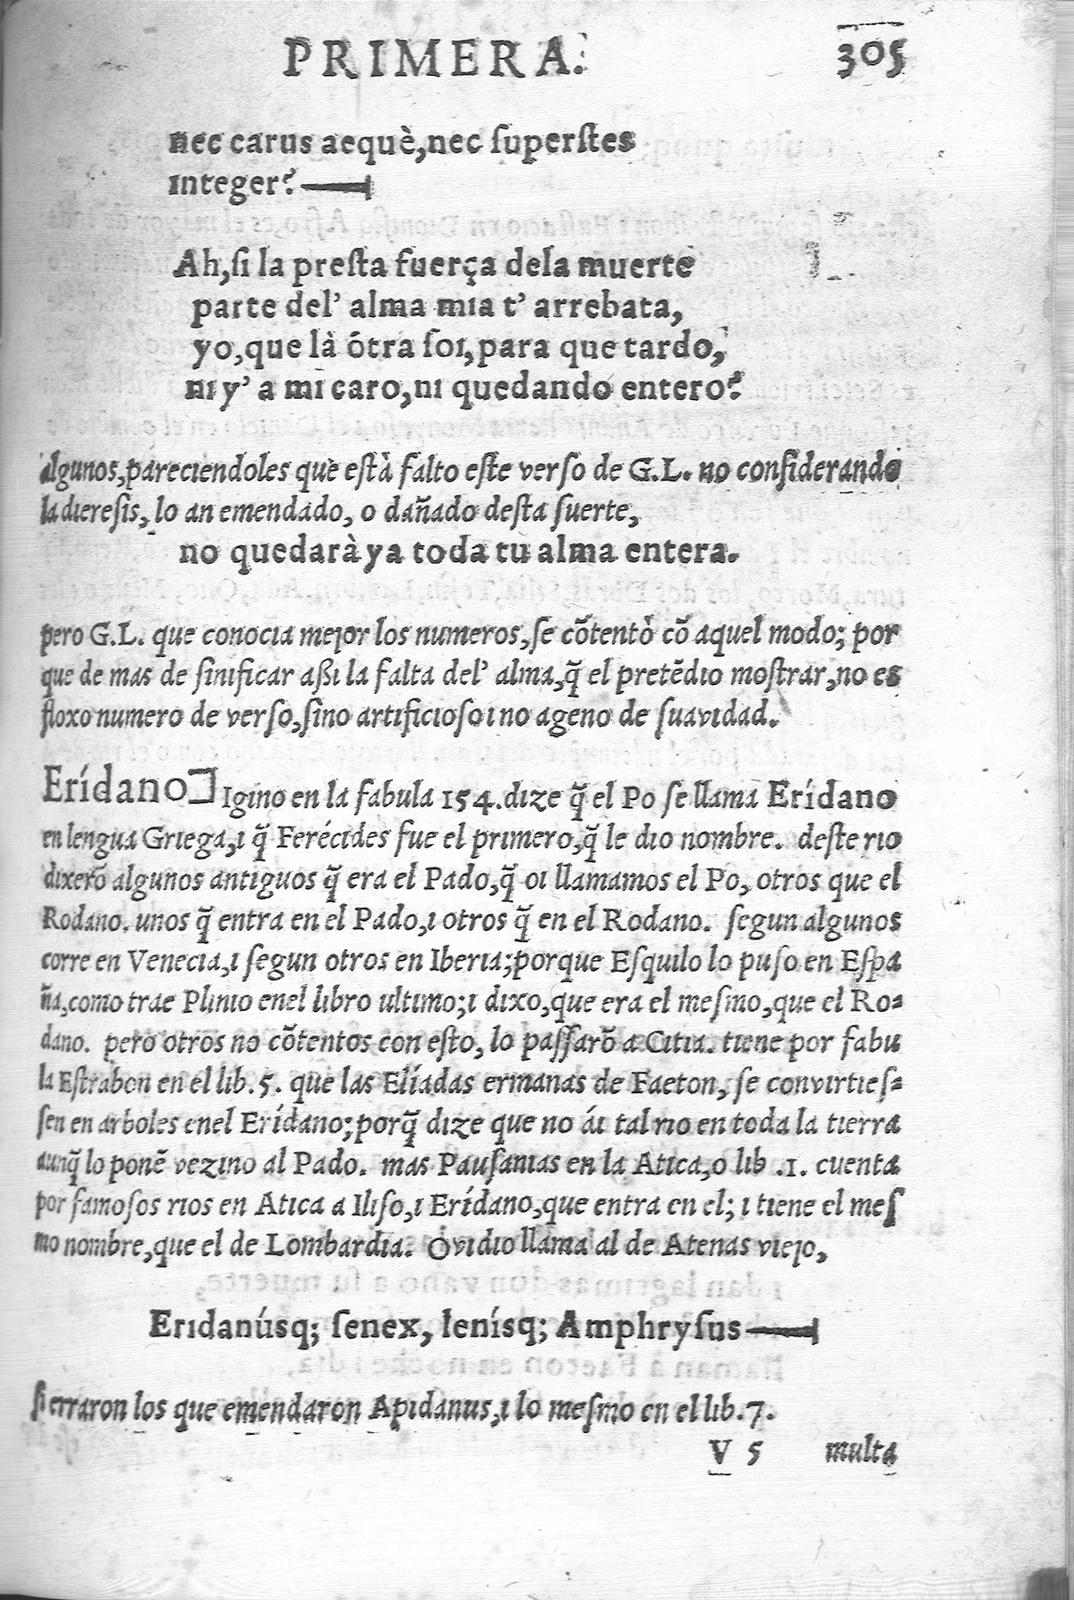 PRIMERA. 305
nec carus aequè,nec ſuperſtes
integer?
Ah,ſi la preſta fuerça dela muerte
parte del' alma mia t' arrebata,
yo,que là ótra ſoı,para que tardo,
ni y' a mi caro,ni quedando entero?
algunos,pareciendoles que eſtà falto eſte verſo de G.L. no conſiderando
la dıereſis, lo an emendado, o dañado deſta ſuerte,
no quedarà ya toda tu alma entera.
pero G.L. que conocıa mejor los numeros,ſe cõtentò cõ aquel modo; por
que de mas de ſinificar aßı la falta del' alma,q̃ el pretẽdıo moſtrar,no es
floxo numero de verſo,ſino artificioſo ı no ageno de ſuavıdad.
Erídano] Igino en la fabula 154.dıze q̃ el Po ſe llama Erídano
en lengua Grıega,ı q̃ Ferécides fue el primero,q̃ le dıo nombre. deſte rıo
dıxerõ algunos antiguos q̃ era el Pado,q̃ oı llamamos el Po, otros que el
Rodano. unos q̃ entra en el Pado,ı otros q̃ en el Rodano. ſegun algunos
corre en Venecıa,ı ſegun otros en Iberıa;porque Eſquilo lo puſo en Eſpa
ña,como trae Plinıo enel libro ultımo;ı dıxo,que era el meſmo,que el Ro-
dano. pero otros no cõtentos con eſto, lo paſſarõ a Cıtıa. tıene por fabu
la Eſtrabon en el lib. 5. que las Elíadas ermanas de Faeton, ſe convırtıeſ-
ſen en arboles enel Erídano;porq̃ dıze que no áı tal rıo en toda la tıerra
aunq̃ lo ponẽ vezıno al Pado. mas Pauſanıas en la Atıca,o lıb .1. cuenta
por famoſos rıos en Atıca a Ilıſo,ı Erídano,que entra en el; ı tıene el meſ
mo nombre,que el de Lombardıa. Ovıdıo llama al de Atenas vıejo,
Erıdanúsq; ſenex, lenísq; Amphryſus
ſi erraron los que emendaron Apıdanus,ı lo meſmo en el lıb.7.
V 5 multa